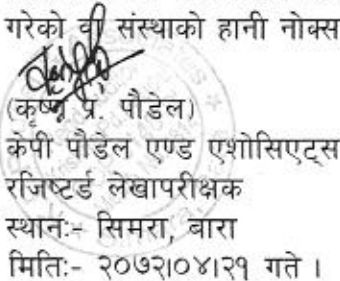 गरेको वा संस्थाको हानी नोक्स
(कृष्ण प्र. पौडेल)
केपी पौडेल एण्ड एशोसिएट्स
रजिष्टर्ड लेखापरीक्षक
स्थानः- सिमरा, बारा
मितिः- २०७२।०४।२१ गते ।